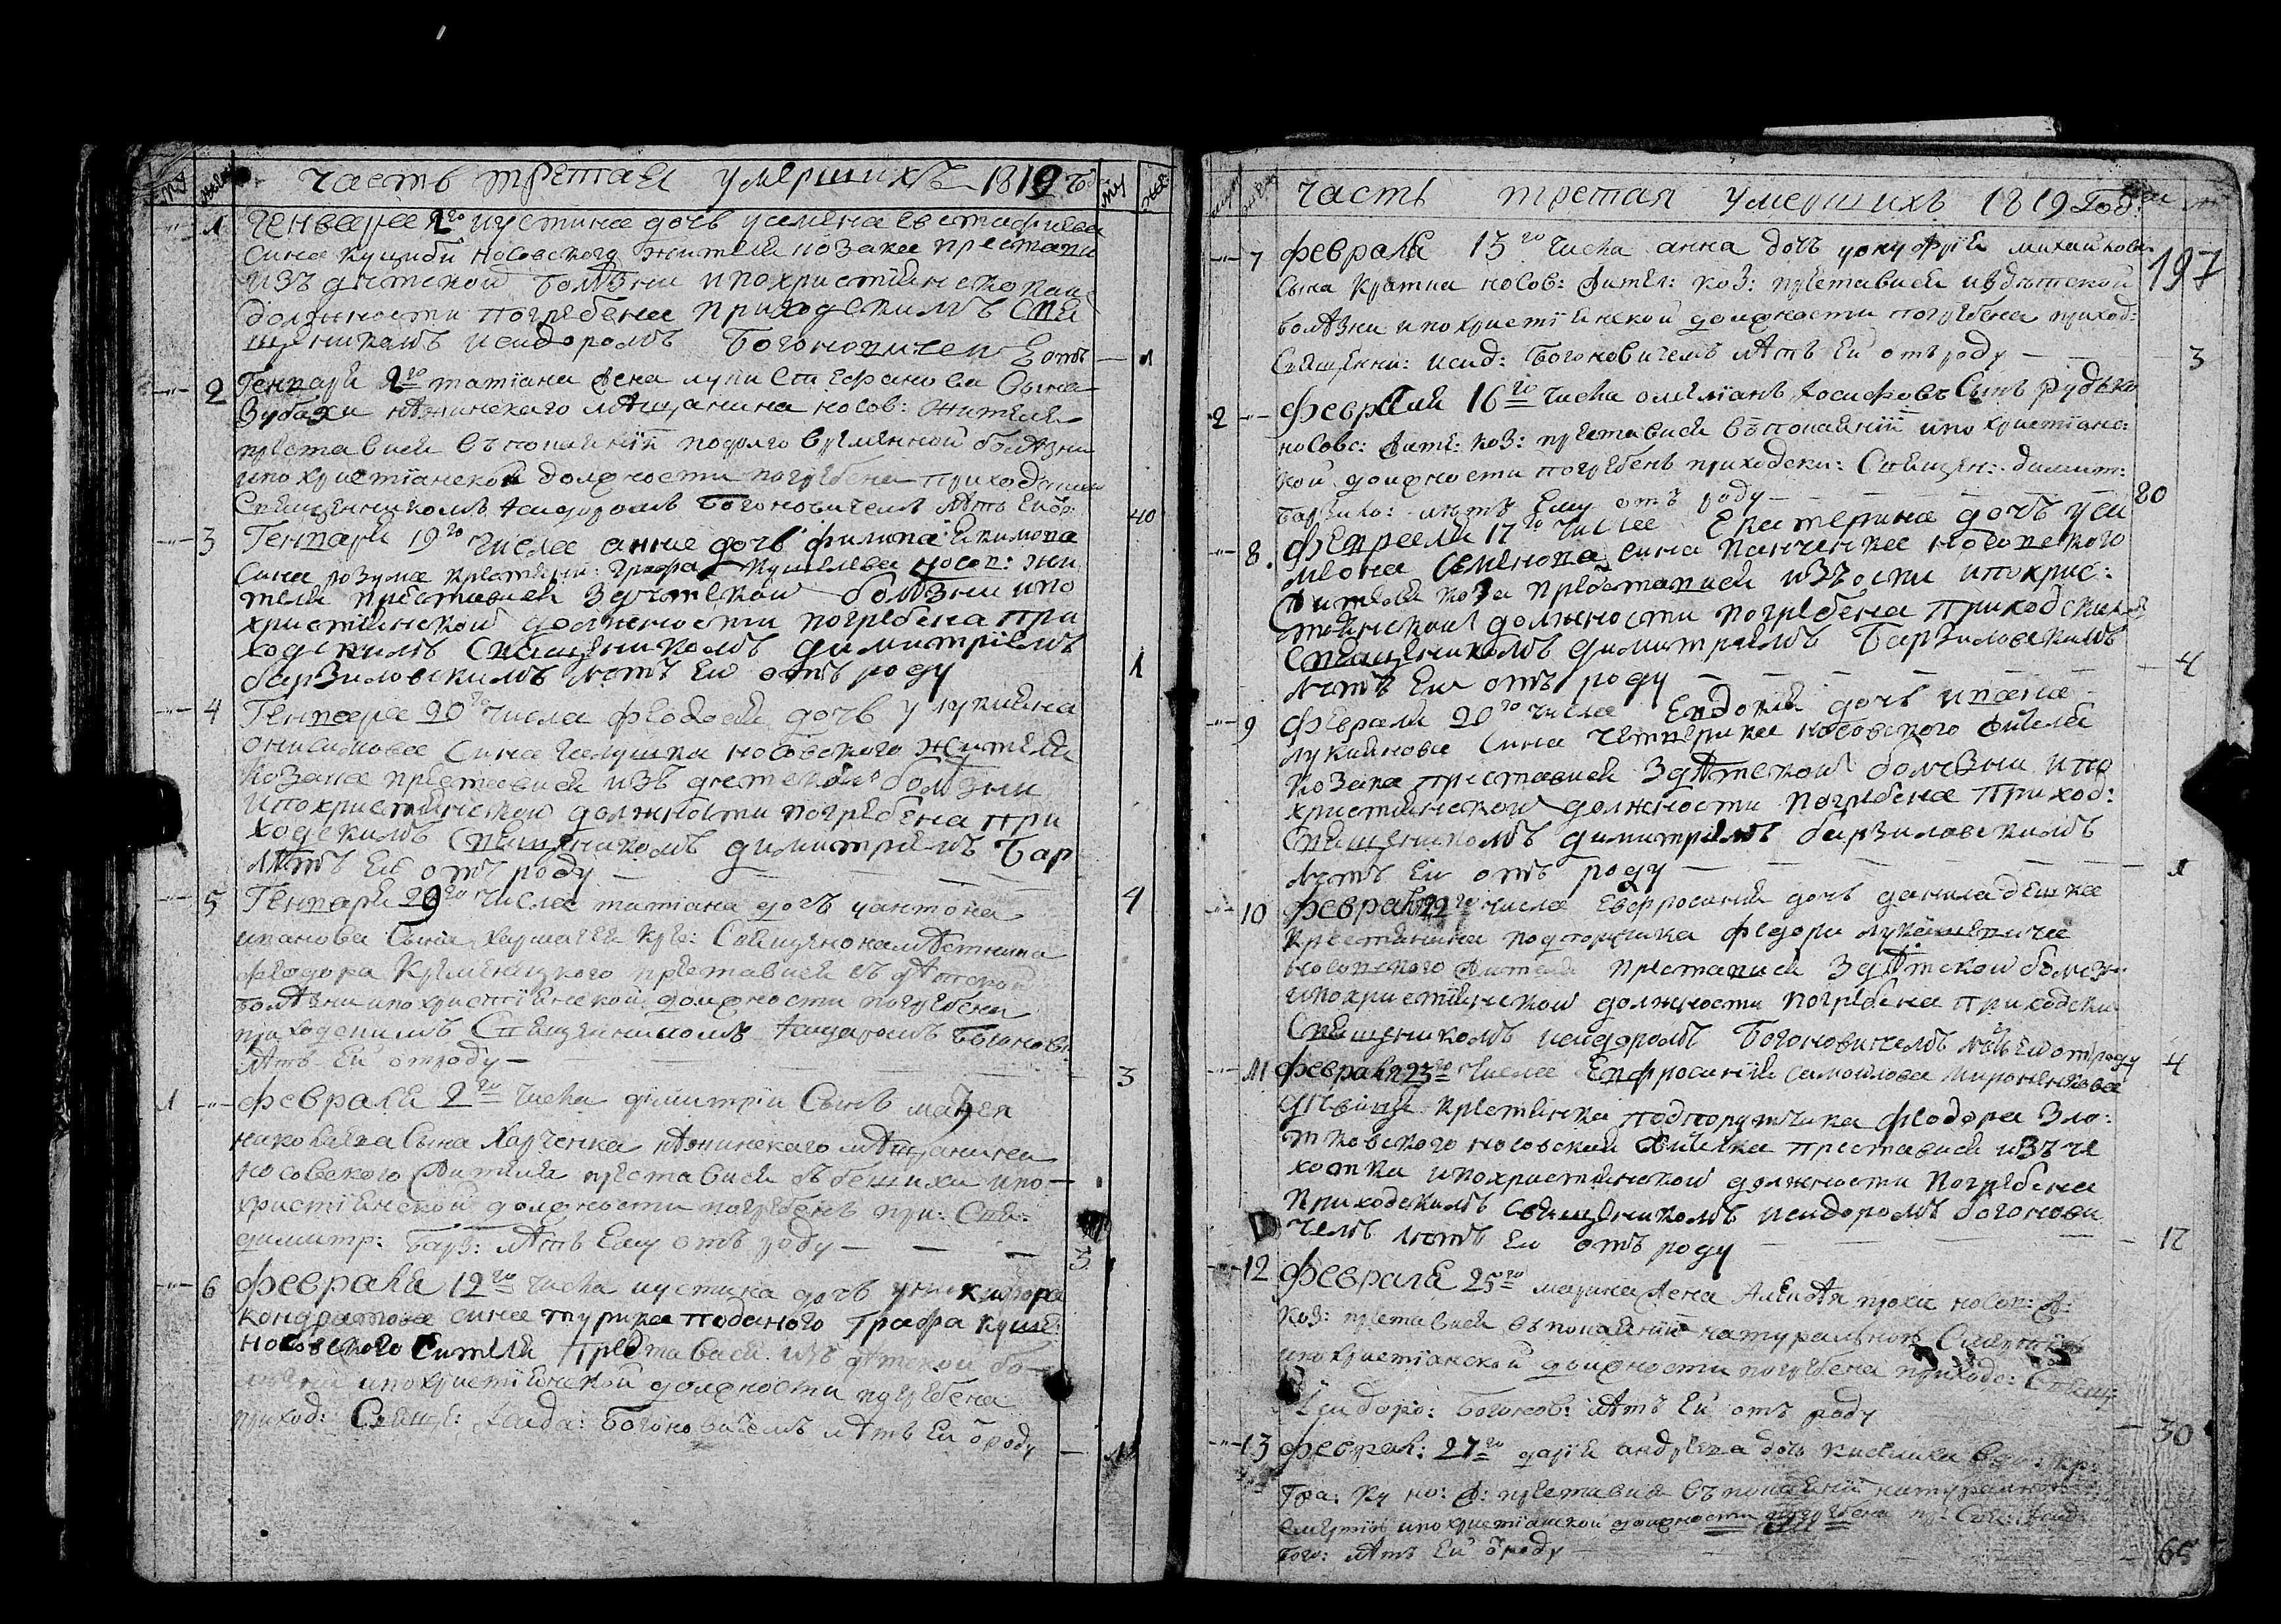 часть третая умершихъ 1819 г
1 Генваря 2го иустина дочь усемена евстафиева
сина куциби носовского жителя козака престави
изъ дѣтской болѣзни и похристиянской
должности погребена приходскимъ свя
щеникомъ исидоромъ Богоновичем 1
2 Генваря 2го татїана жена луки Стефанова Сына
нѣжинскаго мѣщанина носов: жителя
преставися въ покаянїи по долговременной болѣзни
и по христїанской должности погребена приходским
Священникомъ Исидоромъ Богоновичемъ лѣтъ Ей 40
3 Генваря 19го числа анна дочь филипа Екимова
сина розума крестяни: графа Кушелева носов: жи
теля преставися з дѣтской болѣзни и по
християнской должности погребена при
ходскимъ Священикомъ димитрїемъ
барзиловскимъ лѣтъ ей отъ роду 1
4 Генваря 20го числа феодосия дочь у лукияна
онисимова сина галушки носовского жителя
козака преставися изъ дѣтской болѣзни
и по християнской должности погребена при
ходскимъ Священикомъ димитриемъ Бар
лѣтъ ей отъ роду 4
5 Генваря 29го числа татїана дочь уантона
иванова Сына кре: Священонамѣстника
феодора Кременецкого преставися съ дѣтской
болѣзни и по христїянской должности погребена
приходскимъ Священникомъ Исидоромъ Богонови
лѣтъ Ей отроду 3
1 февраля 2го числа димитрїи Сынъ
николаева Сына Харченка нѣжинскаго мѣщанина
носовского жителя преставися съ бешихи и по
христїянской должности погребенъ при: Свя:
димитр: Барз: лѣтъ Ему отъ роду 3
6 февраля 12го числа иустина дочь у никифора
кондратова сина турика поданого графа куше:
носовского жителя преставися изъ дѣтской бо
лѣзни и по христїянской должности погребена
приход: Свяще: Исидо: Богоновичемъ лѣтъ Ей ѿ роду
часть третая умершихъ 1819 Год:
197
7 февраля 15го числа анна дочь уонуфрїя михайлова
Сына носов: жител: коз: преставися издѣтской
болѣзни и по христїянской должности погребена приход:
Священни: исид: Богоновичемъ лѣтъ Ей отъ роду 3
2 февраля 16го числа омелїанъ Иосифовъ Сынъ Рудько
носовс: жите: коз: преставися въ покаянїи и по христїанс:
кой должности погребенъ приходски: Священ: димит:
Барзило: лѣтъ Ему отъ роду 80
8 Февраля 17го числа Екатерина дочь уси
меона Семенова сина панченка носовского
жителя коза преставися изъ оспи и по крис:
тиянской должности погребена приходским
Священикомъ димитриемъ Барзиловскимъ
лѣтъ Ей отъ роду 4
9 февраля 20го числа Евдокия дочь ивана
лукиянова сина четверика носовского жителя
козака преставися з дѣтской болѣзни и по
християнской должности погребена приход:
Священикомъ димитриемъ барзиловскимъ
лѣтъ Ей отъ роду 1
10 февраля 22го числа Евфросиния дочь данила дешка
крестянина подпоручика федора
носовского жителя преставися з дѣтской болез
и по християнской должности погребена приходски
Священикомъ исидоромъ Богоновичемъ лѣтъ Ей отроду 4
11 февраля 23го числа Евфросиния самойлова миронанкова
дѣвица крестянка подпоручика феодора Зло:
тковского носовския жителка преставися изъ че
хотки и по християнской должности погребена
приходскимъ священикомъ исидоромъ богонови
чемъ лѣтъ Ей отъ роду 17
12 февраля 25го марина жена Алексѣя носов: ж:
коз: преставися въ покаянїи натуральною Смертию
и по христїанской должности погребена приходс: Священ:
Исидоро: Богонов: лѣтъ Ей отъ роду 30
13 феврал: 27го дарїя андреева дочь вдо: кр:
Гра: Ку но: ж: преставися въ покаянїи натуральною
смертїю и по христїанской должности погребена пр: Свя: Исид:
Бого: лѣтъ Ей ѿ роду 65